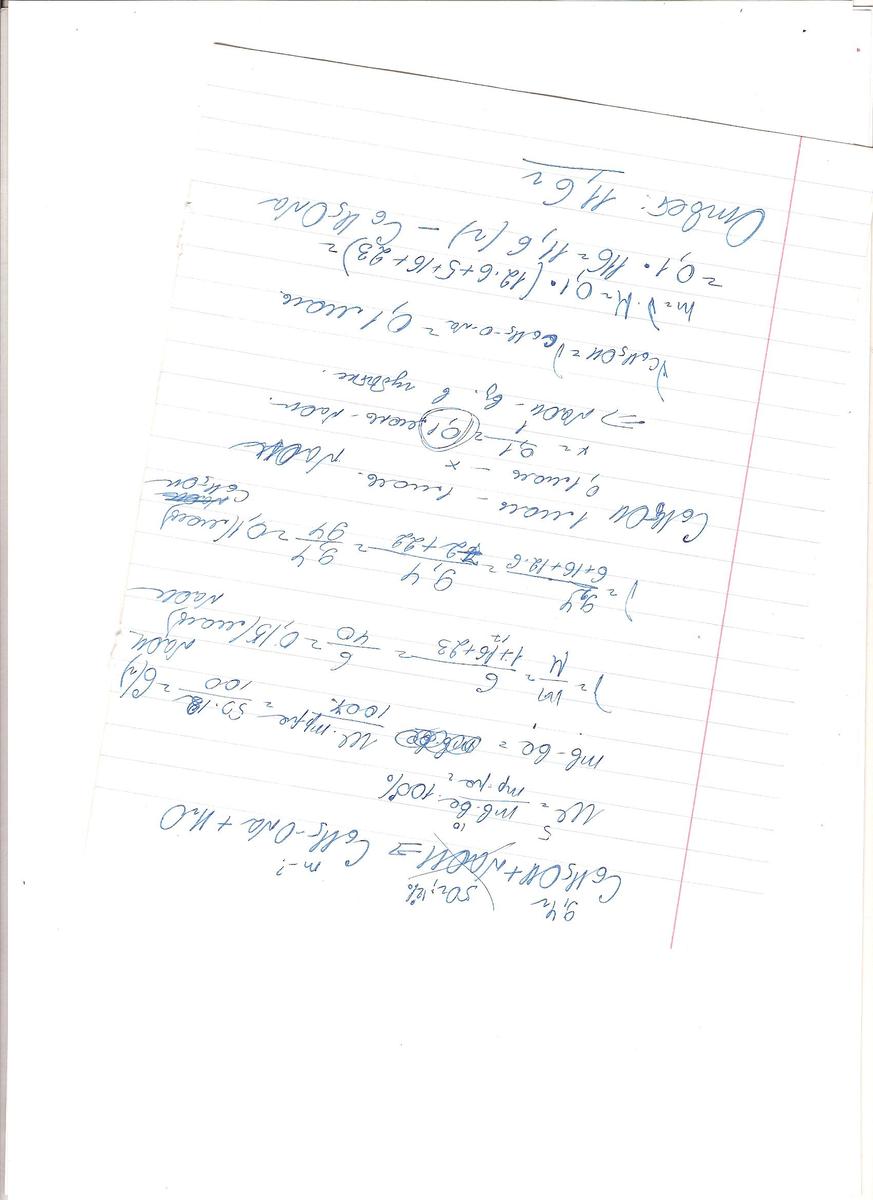 9,4г 50г, 12%
m-?
C6H5OH + NaOH => C6H5-ONa + H2O
W = mв-ва / mр-ра · 100%
mв-ва = W·mр-ра / 100% = 50·12 / 100 = 6(г) NaOH
ν = m / M = 6 / 1+16+23 = 6 / 40 = 0,15(моль) NaOH
ν = 9,4 / 6+16+12·6 = 9,4 / 72+22 = 9,4 / 94 = 0,1(моль) C6H5OH
C6H5OH 1моль - 1моль. NaOH
0,1моль - x
x = 0,1 / 1 = 0,1 моль - NaOH.
=> NaOH - вз. в избытке.
νC6H5OH = νC6H5-ONa = 0,1моль.
m = ν·M = 0,1·(12·6+5+16+23) =
= 0,1 · 116 = 11,6 (г) - C6H5ONa
Ответ: 11,6г